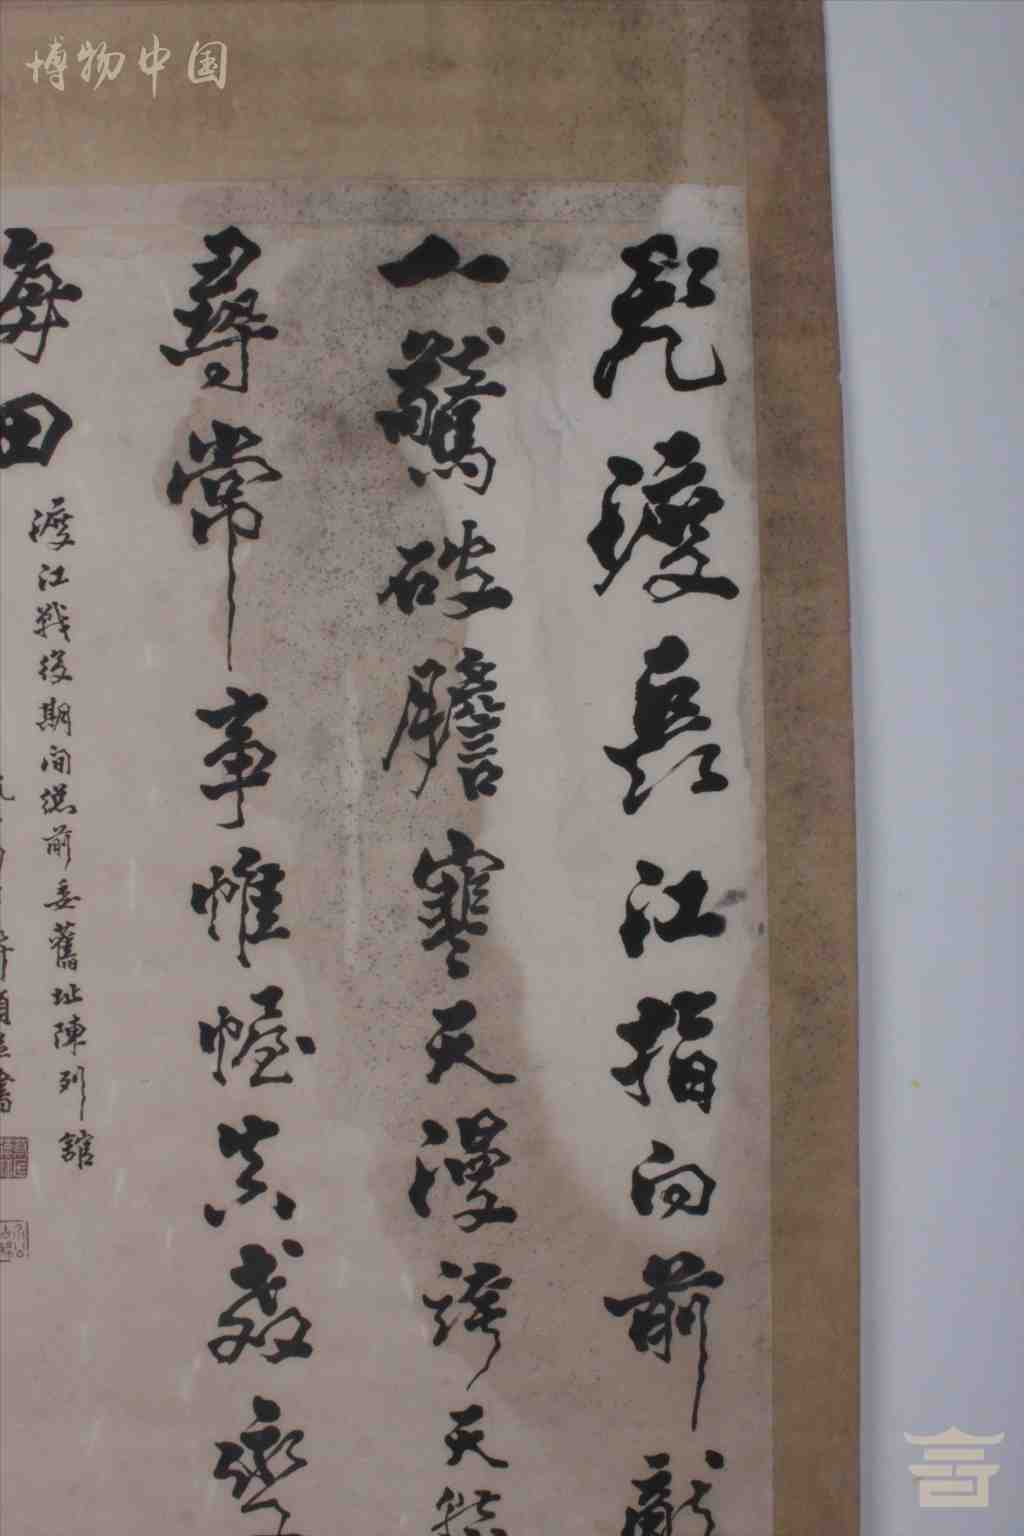 博物中国
飛渡長江指向前敵
人驚破膽寒天漫誇天塹
尋常事帷幄共
田
渡江戰役期間總前委舊址陳列館
書